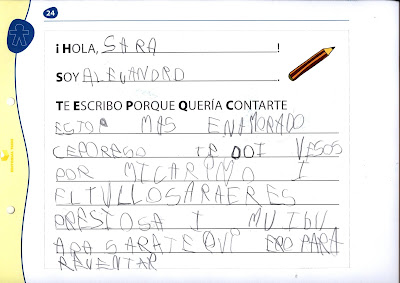 24
¡HOLA, SARA!
SOY ALEGANDRO
TE ESCRIBO PORQUE QUERÍA CONTARTE
ESTOP MAS ENAMORADO
CEPORESO TE DOI VESOS
POR MI CARIMO I
ELTULLO SARA ERES
PRESIOSA I MUI GU
APA SARA TE QUI ERO PARA
REVENTAR